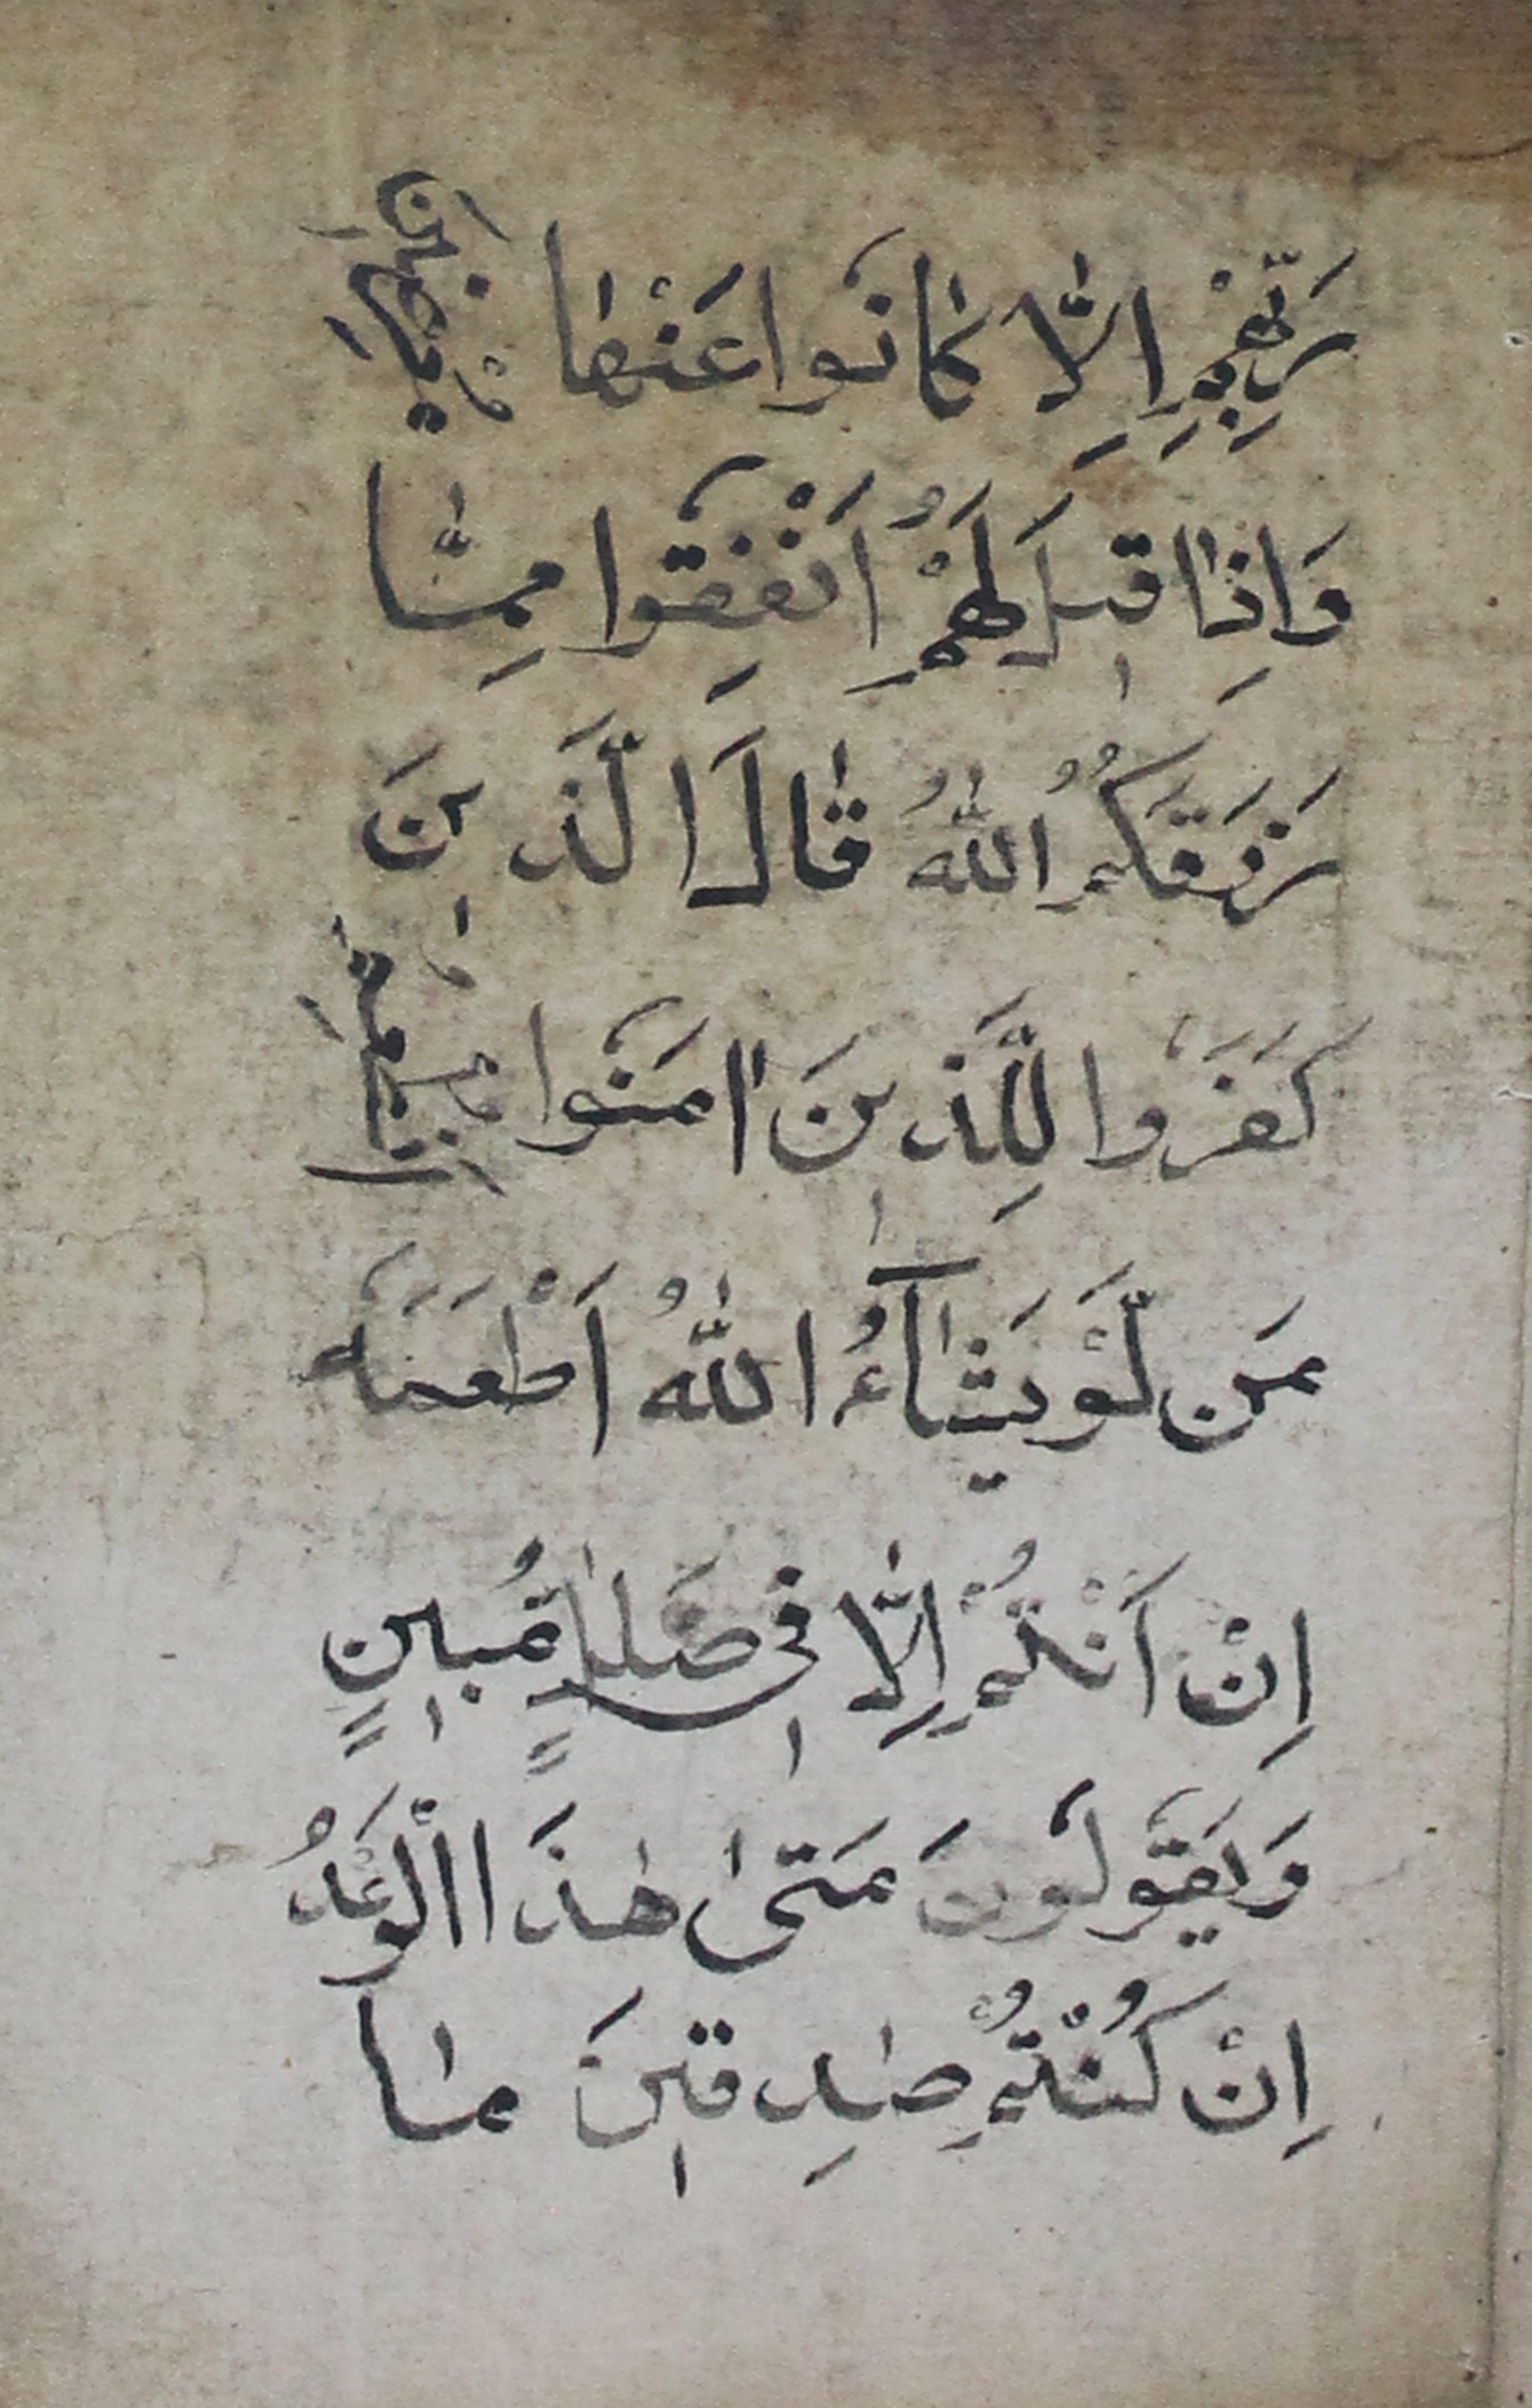 رَبِّهِمْ اِلَّا كَانُوا عَنْهَا مُعْرِضِينَ
وَاِذَا قِيلَ لَهُمْ اَنْفِقُوا مِمَّا
رَزَقَكُمُ اللّٰهُ قَالَ الَّذِينَ
كَفَرُوا لِلَّذِينَ اٰمَنُوا اَنُطْعِمُ
مَن لَّوْ يَشَآءُ اللّٰهُ اَطْعَمَهُ
اِنْ اَنْتُمْ اِلَّا فِى ضَلٰلٍ مُّبِينٍ
وَيَقُولُونَ مَتٰى هٰذَا الْوَعْدُ
اِنْ كُنْتُمْ صٰدِقِينَ مَا